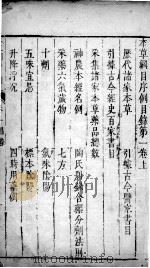 本草綱目序例目錄第一卷上
歷代諸家本草
引據古今醫家書目
引據古今經史百家書目
采集諸家本草藥品總數
神農本經名例
陶氏別錄合藥分劑法則
采藥六氣歲物
七方
十劑
氣味陰陽
五味宜忌
標本陰陽
升降浮沉
四時用藥例